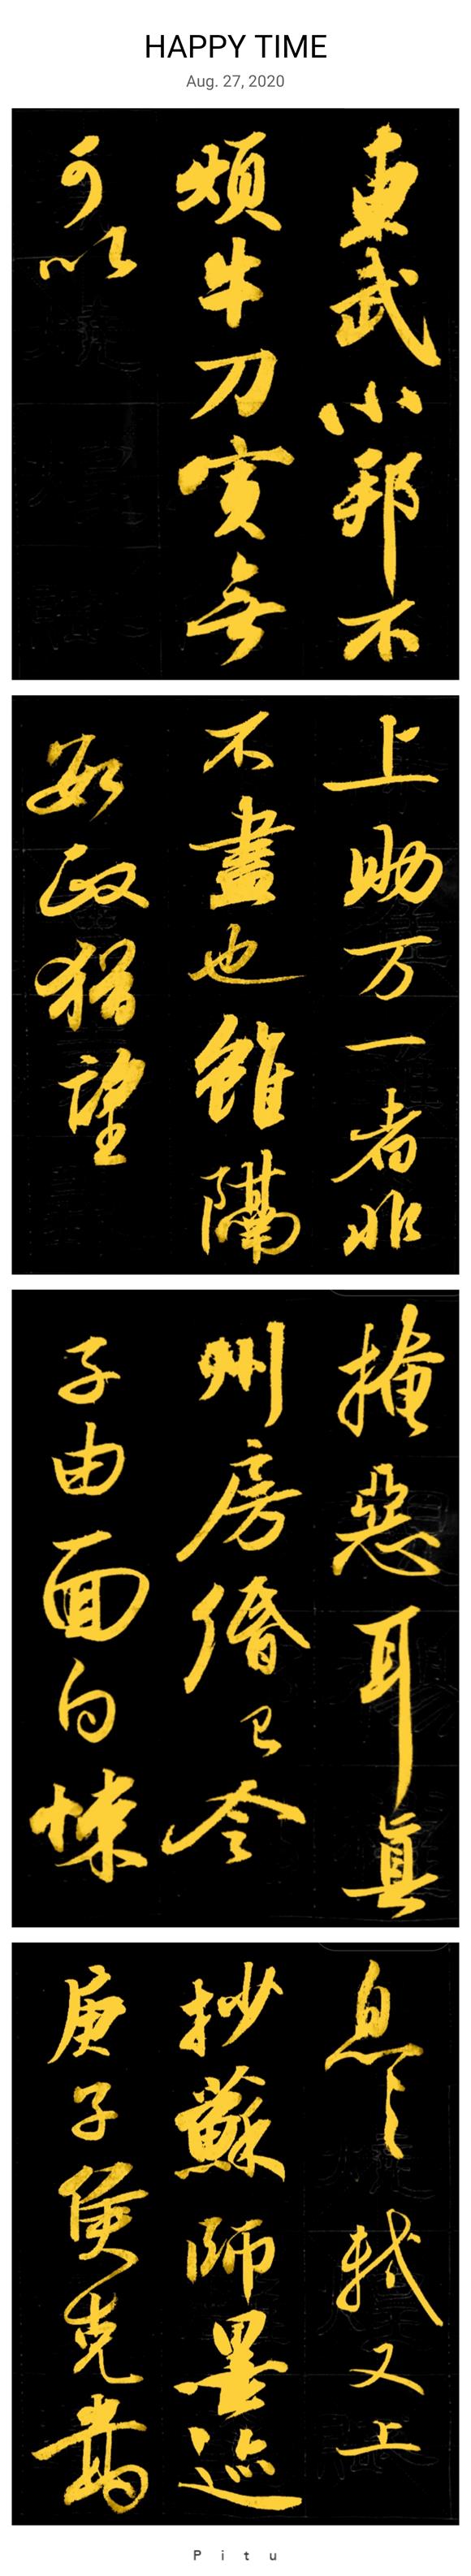 HAPPY TIME
Aug. 27, 2020
東武小邦不
煩牛刀實無
可以
上助万一者非
不盡也雖隔
數政猶望
掩惡耳真
州房僭已令
子由面白悚
息之軾又上
抄蘇師墨迹
庚子侯克
Pitu